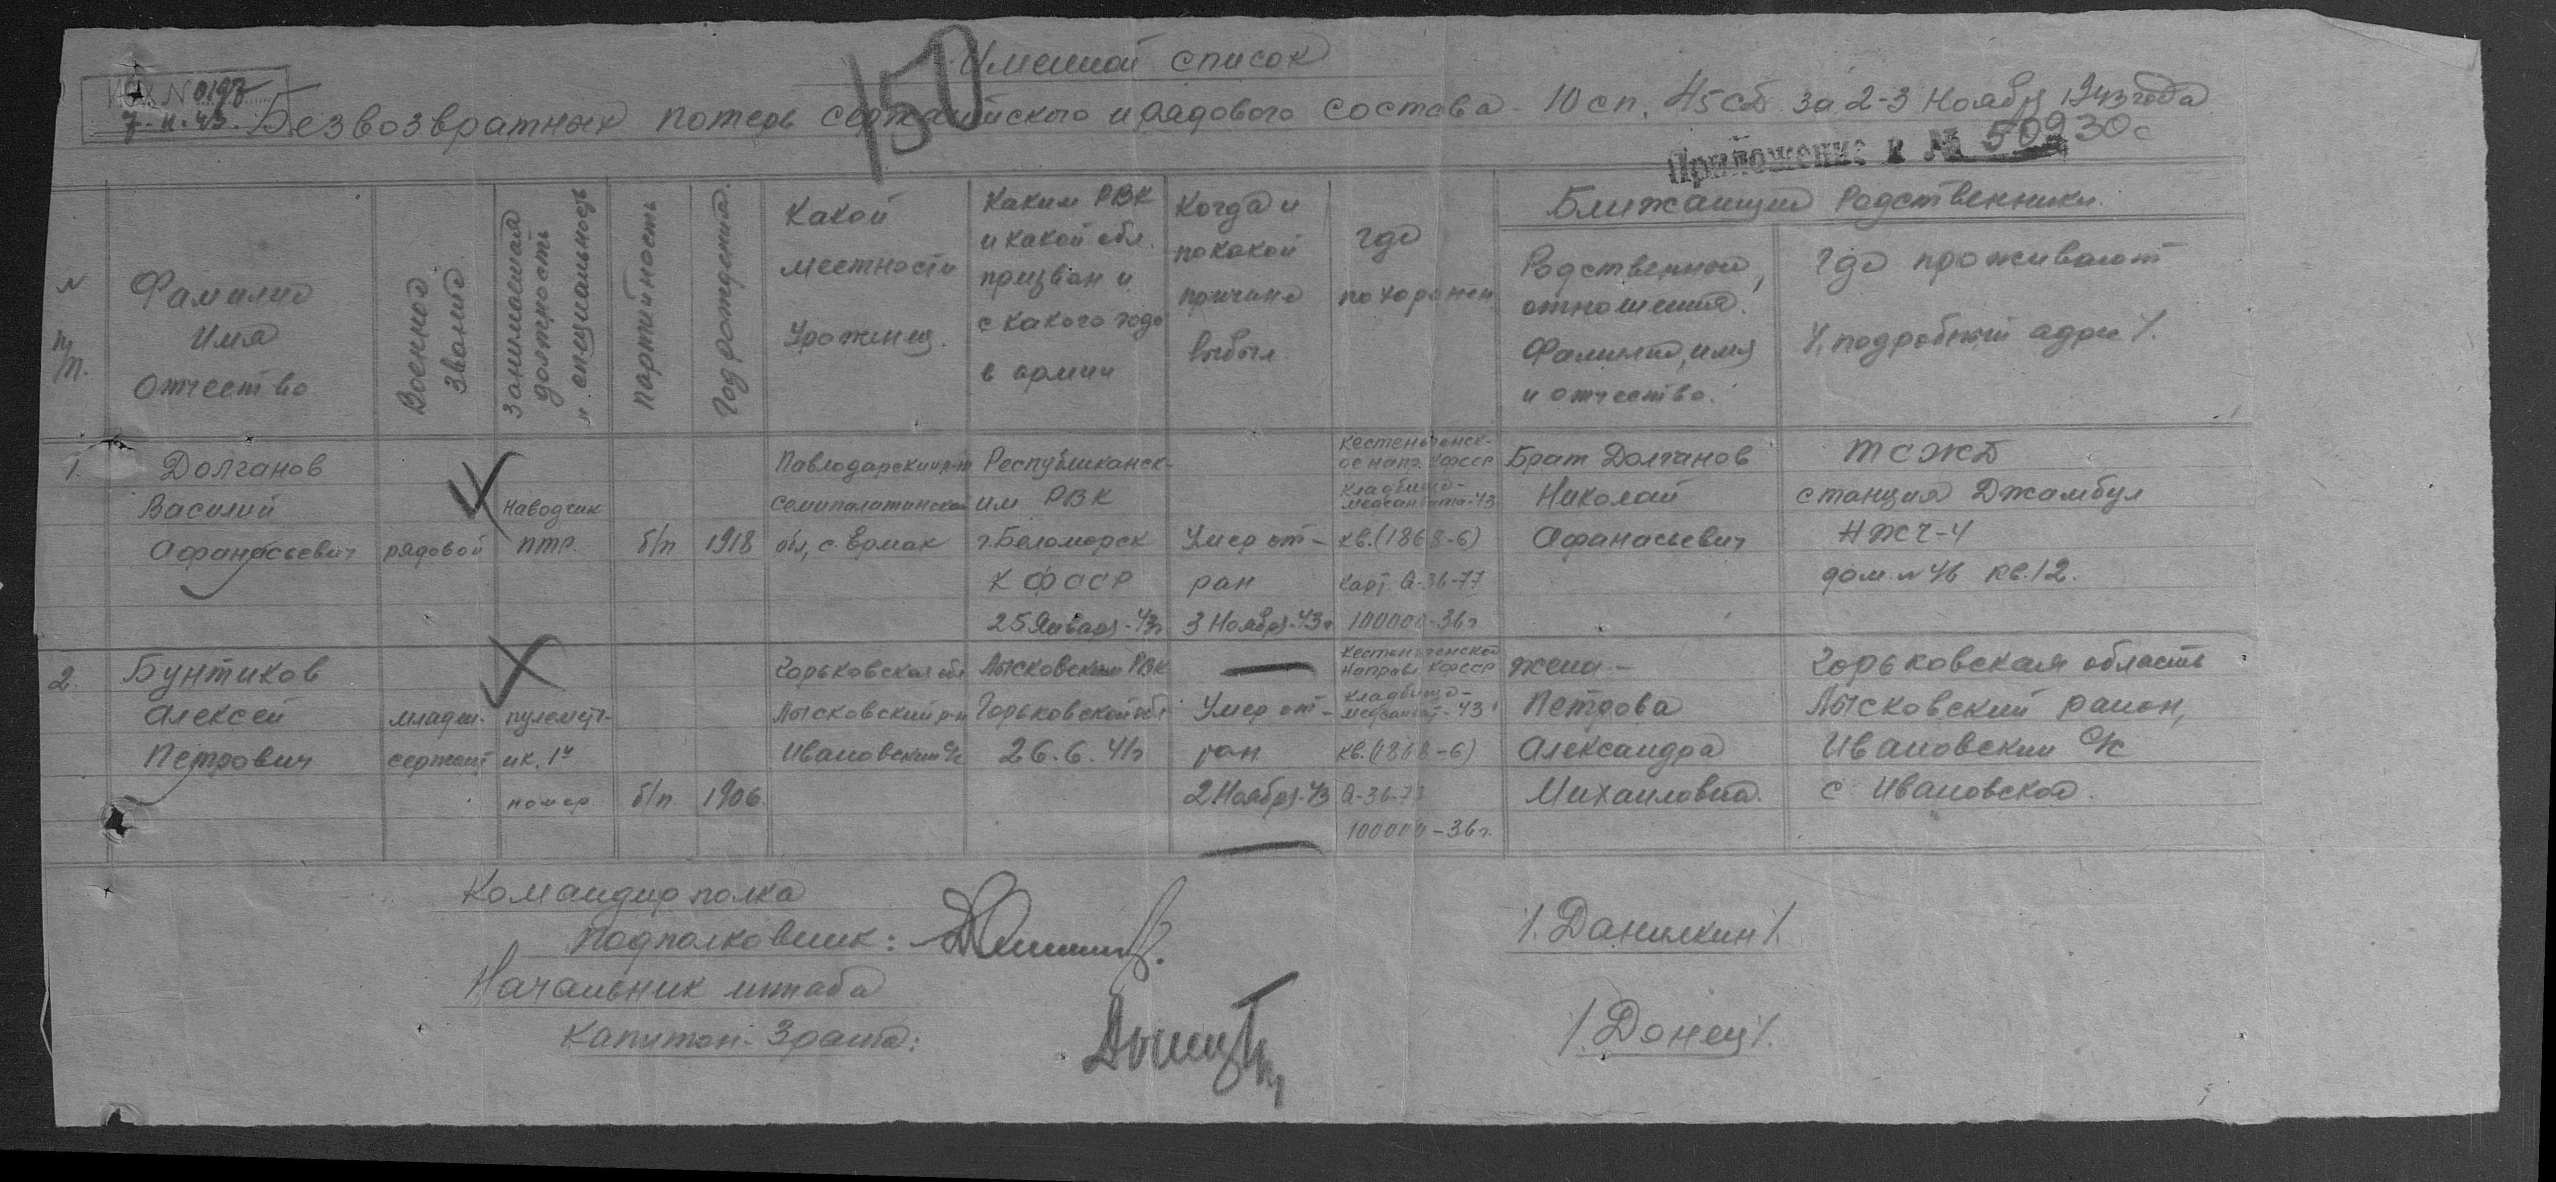 Исх. N 0198
7-11-43.
150
Именной список
Безвозвратных потерь сержантского и рядового состава - 10 сп. 45 сд за 2-3 Ноября 1943 года
Приложение к № 50930с
N п/п.
Фамилия
Имя
Отчество
Военное
звание
Занимаемая
должность
и специальность
Партийность
Год рождения.
Какой
местности
Урожениц.
Каким РВК
и какой обл.
призван и
с какого года
в армии
Когда и
по какой
причине
выбыл
Где
похоронен
Ближайшие Родственники.
Родственные,
отношения.
Фамилия, имя
и отчество.
Где проживают
/подробный адрес/.
1.
Долганов
Василий
Афанасьевич
рядовой
Наводчик
ПТР.
б/п
1918
Павлодарский р-н
Семипалатинской
обл, с. Ермак
Республиканск-
им РВК
г. Беломорск
КФССР
25 Января-43г
Умер от-
ран
3 Ноября-43г
Кестеньгенск-
ое напр. КФССР
Кладбище-
медсанбата-43
кв.(1868-6)
Карт. Q-36-77
100000-36г
Брат Долганов
Николай
Афанасьевич
ТСЖД
станция Джамбул
НЖЧ-4
дом. N 46 кв. 12.
2.
Бунтиков
Алексей
Петрович
младш.
сержант
пулемет-
ик. 1й
номер
б/п
1906
Горьковская обл
Лысковский р-н
Ивановский с/с
Лысковским РВК
Горьковской обл
26.6.41г
Умер от-
ран
2 Ноября-43
Кестеньгенской
Направ. КФССР
Кладбище-
медсанбат-43
кв.(1868-6)
Q-36-77
100000-36г.
жена-
Петрова
Александра
Михаиловна.
Горьковская область
Лысковский район,
Ивановский с/с
с Ивановское.
Командир полка
Подполковник:
/.Данилкин/.
Начальник штаба
Капитан-
/.Донец/.